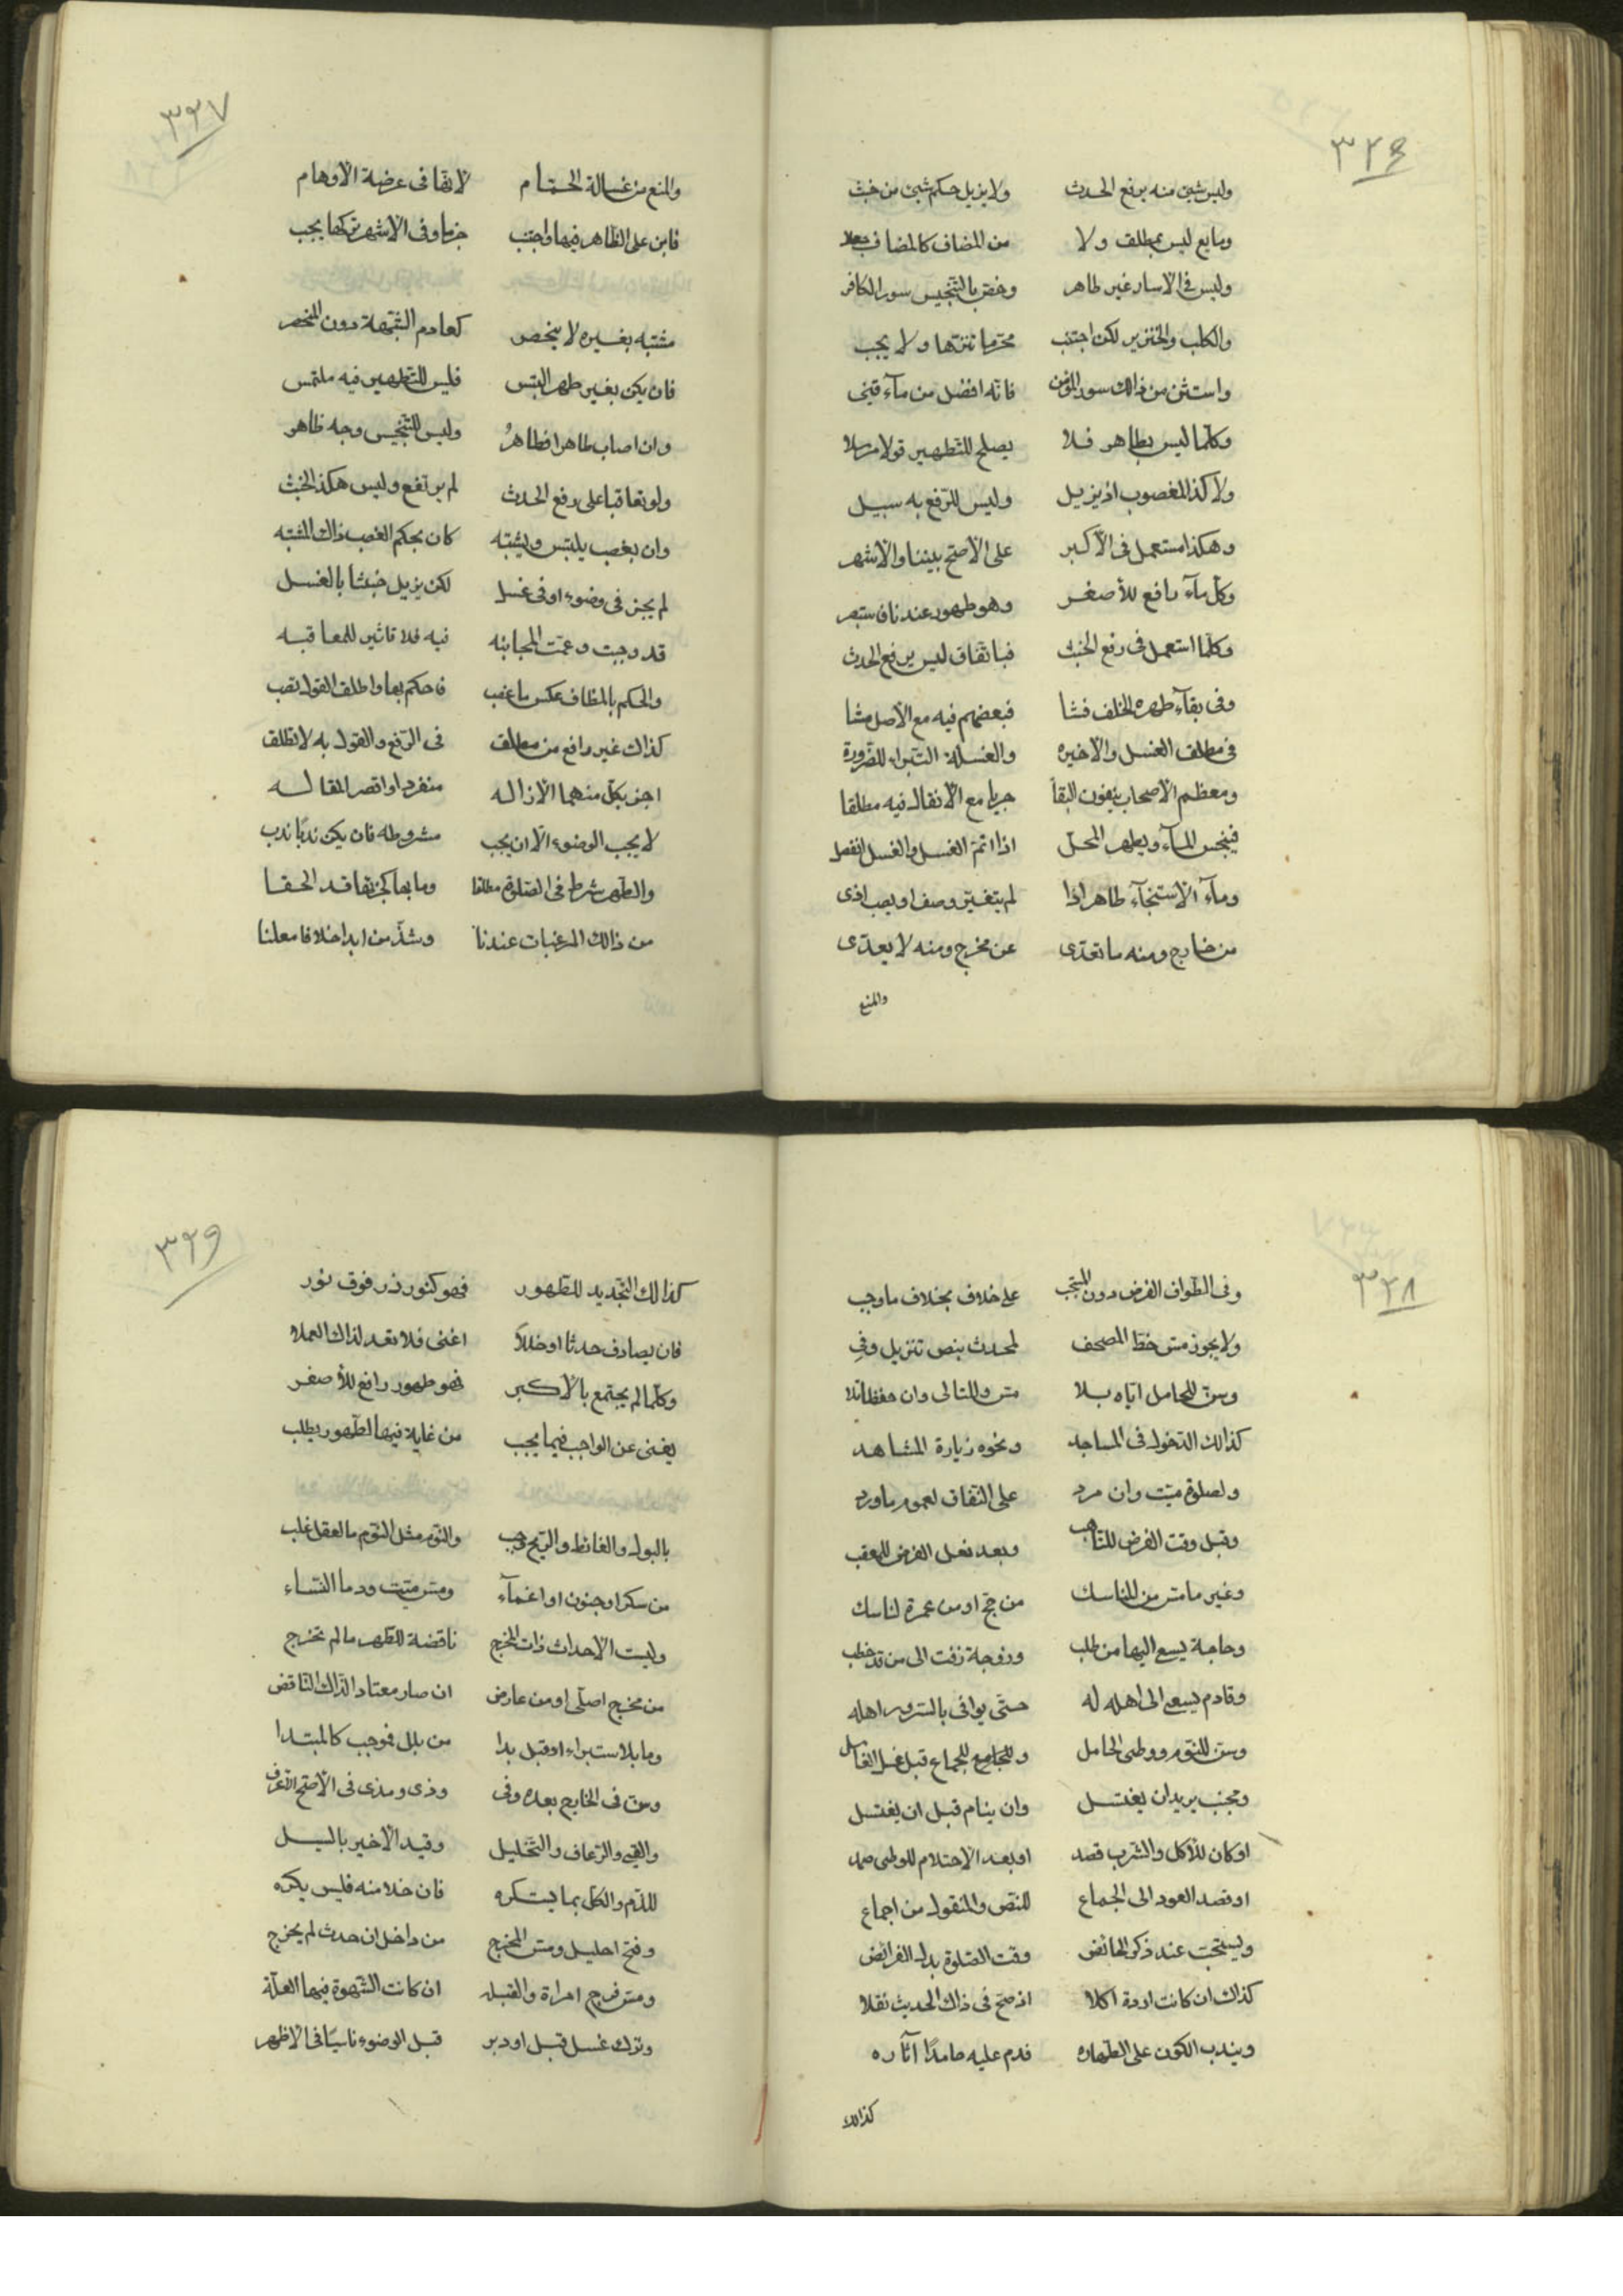 ٣٢٦
وليس شيئ منه يرفع الحدث ولا يزيل حكم شيئ من خبث
ومايع ليس بمطلق ولا من المضاف كالمضاف
وليس في الاسار غير طاهر وخص بالتنجيس سور الكافر
والكلب والخنزير لكن اجتنب محرما تنزها ولا يجب
واستثن من ذالك سور المؤمن فانه افضل من مآء
وكلما ليس بطاهر فلا يصلح للتطهير قولا مرسلا
ولا كذا المغصوب اذ يزيل وليس للرفع به سبيل
وهكذا مستعمل في الاكبر على الاصح بيننا والاشهر
وكل مآء رافع للأصغر وهو طهور عندنا فاستبصر
وكلما استعمل في رفع الخبث فباتفاق ليس يرفع الحدث
وفي بقآء طهره الخلف فشا فبعضهم فيه مع الاصل مشا
في مطلق الغسل والاخيره والغسلة التبراء للضرورة
ومعظم الاصحاب ينفون البقآ جريا مع الانفعال فيه مطلقا
فينجس المآء ويطهر المحل اذا اتم الغسل والغسل انفصل
ومآء الاستنجآء طاهر اذا لم يتغير وصف او يصب اذى
من خارج ومنه ما تعدى عن مخرج ومنه لا يعدى
والمنع
٣٢٧
والمنع من غسالة الحمام لا نقا في عرضة الاوهام
فابن على الظاهر فيها واجتنب جزما وفي الاشهر تركها يجب
مشتبه بغيره لا ينحصر كعادم الشبهة دون المنحصر
فان يكن بغير طهر التبس فليس للتطهير فيه ملتمس
وان اصاب طاهرا فطاهرُ وليس للتنجيس وجه ظاهر
ولو تعاقبا على رفع الحدث لم يرتفع وليس هكذا الخبث
وان بغصب يلتبس ويشتبه كان بحكم الغصب ذاك المشتبه
لم يجز في وضوء او في غسل لكن يزيل خبثا بالغسل
قد وجبت وعمت المجانبه فيه فلا تاثير للمعاقبه
والحكم بالمظاف عكس ما غصب فاحكم بها واطلق القول تصب
كذاك غير رافع من مطلق في الرفع والقول به لا تطلق
اجز بكل منهما الازاله منفردا واقصر المقاله
لا يجب الوضوء الا ان يجب مشروطه فان يكن ندبًا ندب
والطهر شرط في الصلوة مطلقا وما بها كجزئها قد الحقا
من ذالك المرغبات عندنا وشذ من ابدا خلافا معلنا
٣٢٨
وفي الطواف الفرض دون المستحب على خلاف بخلاف ما وجب
ولا يجوز مس خط المصحف لمحدث بنص تنزيل وفي
وسن للحامل اياه بلا مس وللتالي وان حفظا تلا
كذالك الدخول في المساجد ونحوه زيارة المشاهد
ولصلوة ميت وان مرد على اتفاق لعموم ما ورد
وقبل وقت الفرض للتاهب وبعد فعل الفرض للمعقب
وغير ما مس من المناسك من حج او من عمرة لناسك
وحاجة يسعى اليها من طلب وزوجة زفت الى من قد خطب
وقادم يسعى الى اهله له حتى يوافي بالسرور اهله
وسن للنوم ووطئ الحامل وللجامع للجماع قبل غسل الغاسل
ومجنب يريد ان يغتسل وان ينام قبل ان يغتسل
او كان للاكل والشرب قصد او بعد الاحتلام للوطئ صمد
او قصد العود الى الجماع للنص والمنقول من اجماع
ويستحب عند ذكر الحائض وقت الصلوة بدل الفرائض
كذاك ان كانت اردة اكلا اذ صح في ذاك الحديث نقلا
ويندب الكون على الطهاره فدم عليه حامدًا آثاره
كذالك
٣٢٩
كذالك التجديد للطهور فهو كنور زر فوق نور
فان يصادف حدثا او خللا اغنى فلا تعد لذاك العملا
وكلما لم يجتمع بالاكبر فهو طهور رافع للأصغر
يغني عن الواجب فيما يجب من غاية فيها الطهور يطلب
بالبول والغائط والريح وجب والنوم مثل النوم ما العقل غلب
من سكر او جنون او اغمآء ومس ميت ودما النساء
وليست الاحداث ذات المخرج ناقضة للطهر ما لم تخرج
من مخرج اصلي او من عارض ان صار معتادا لذاك الناقض
وما بلا ستبراء او قبل بدا من بلل فوجب كالمبتدا
وسن في الخارج بعده وفي وذي ومذي في الاصح الاعرف
والقيئ والرعاف والتخليل وقيد الاخير بالسيل
للدم والكل بما يستكره فان خلا منه فليس يكره
وفتح احليل ومس المخرج من داخل ان حدث لم يخرج
ومس فرج امراة والقبله ان كانت الشهوة فيها العلة
وترك غسل قبل او دبر قبل الوضوء ناسيًا في الاظهر